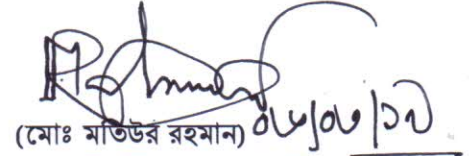 (মোঃ মতিউর রহমান) ০৬/০৬/১৯